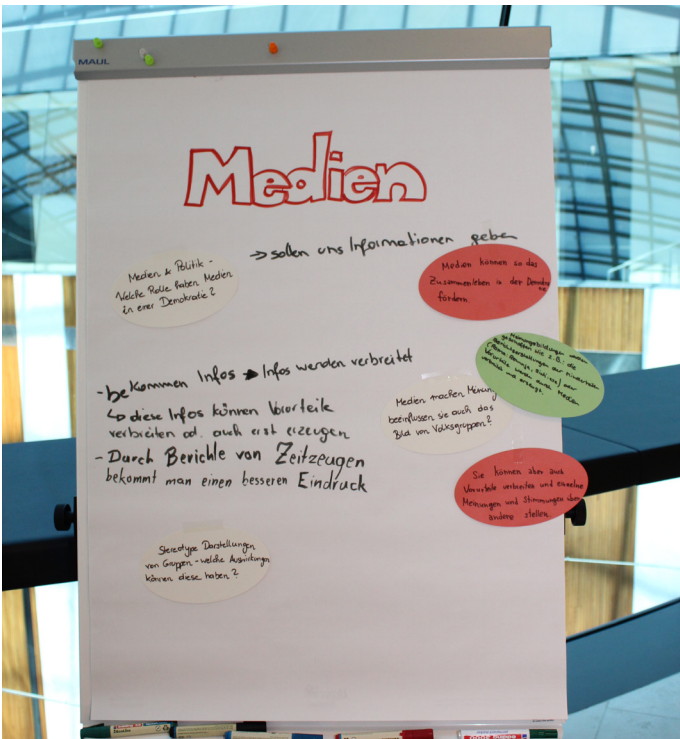 MAUL
Medien
→ sollen uns Informationen geben
Medien & Politik -
Welche Rolle haben Medien
in einer Demokratie?
Medien können so das
Zusammenleben in der Demokratie
fördern.
- bekommen Infos → Infos werden verbreitet
↳ diese Infos können Vorurteile
verbreiten od. auch erst erzeugen
- Durch Berichte von Zeitzeugen
bekommt man einen besseren Eindruck
wie z.B.: die
Vorurteile werden durch Medien
verbreitet und erzeugt.
Medien machen Meinung
beeinflussen sie auch das
Bild von Volksgruppen?
Sie können aber auch
Vorurteile verbreiten und einzelne
Meinungen und Stimmungen über
andere stellen.
Stereotype Darstellungen
von Gruppen - welche Auswirkungen
können diese haben?